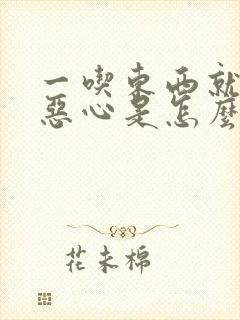 一喫東西就
惡心是怎麼
花未棉